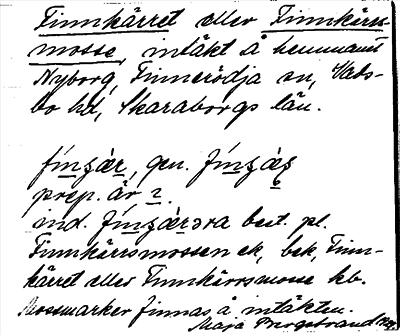 Finnkärret eller Finnkärrs-
mosse, intäkt å hemmanet
Nyborg, Finnerödja sn, Vads-
bo hd, Skaraborgs län.
gen.
prep. är 2.
ind. best. pl.
Finnkärrsmossen ek, bek, Finn-
kärret eller Finnkärrsmosse kb.
Mossmarker finnas å intäkten.
Maja Bergstrand